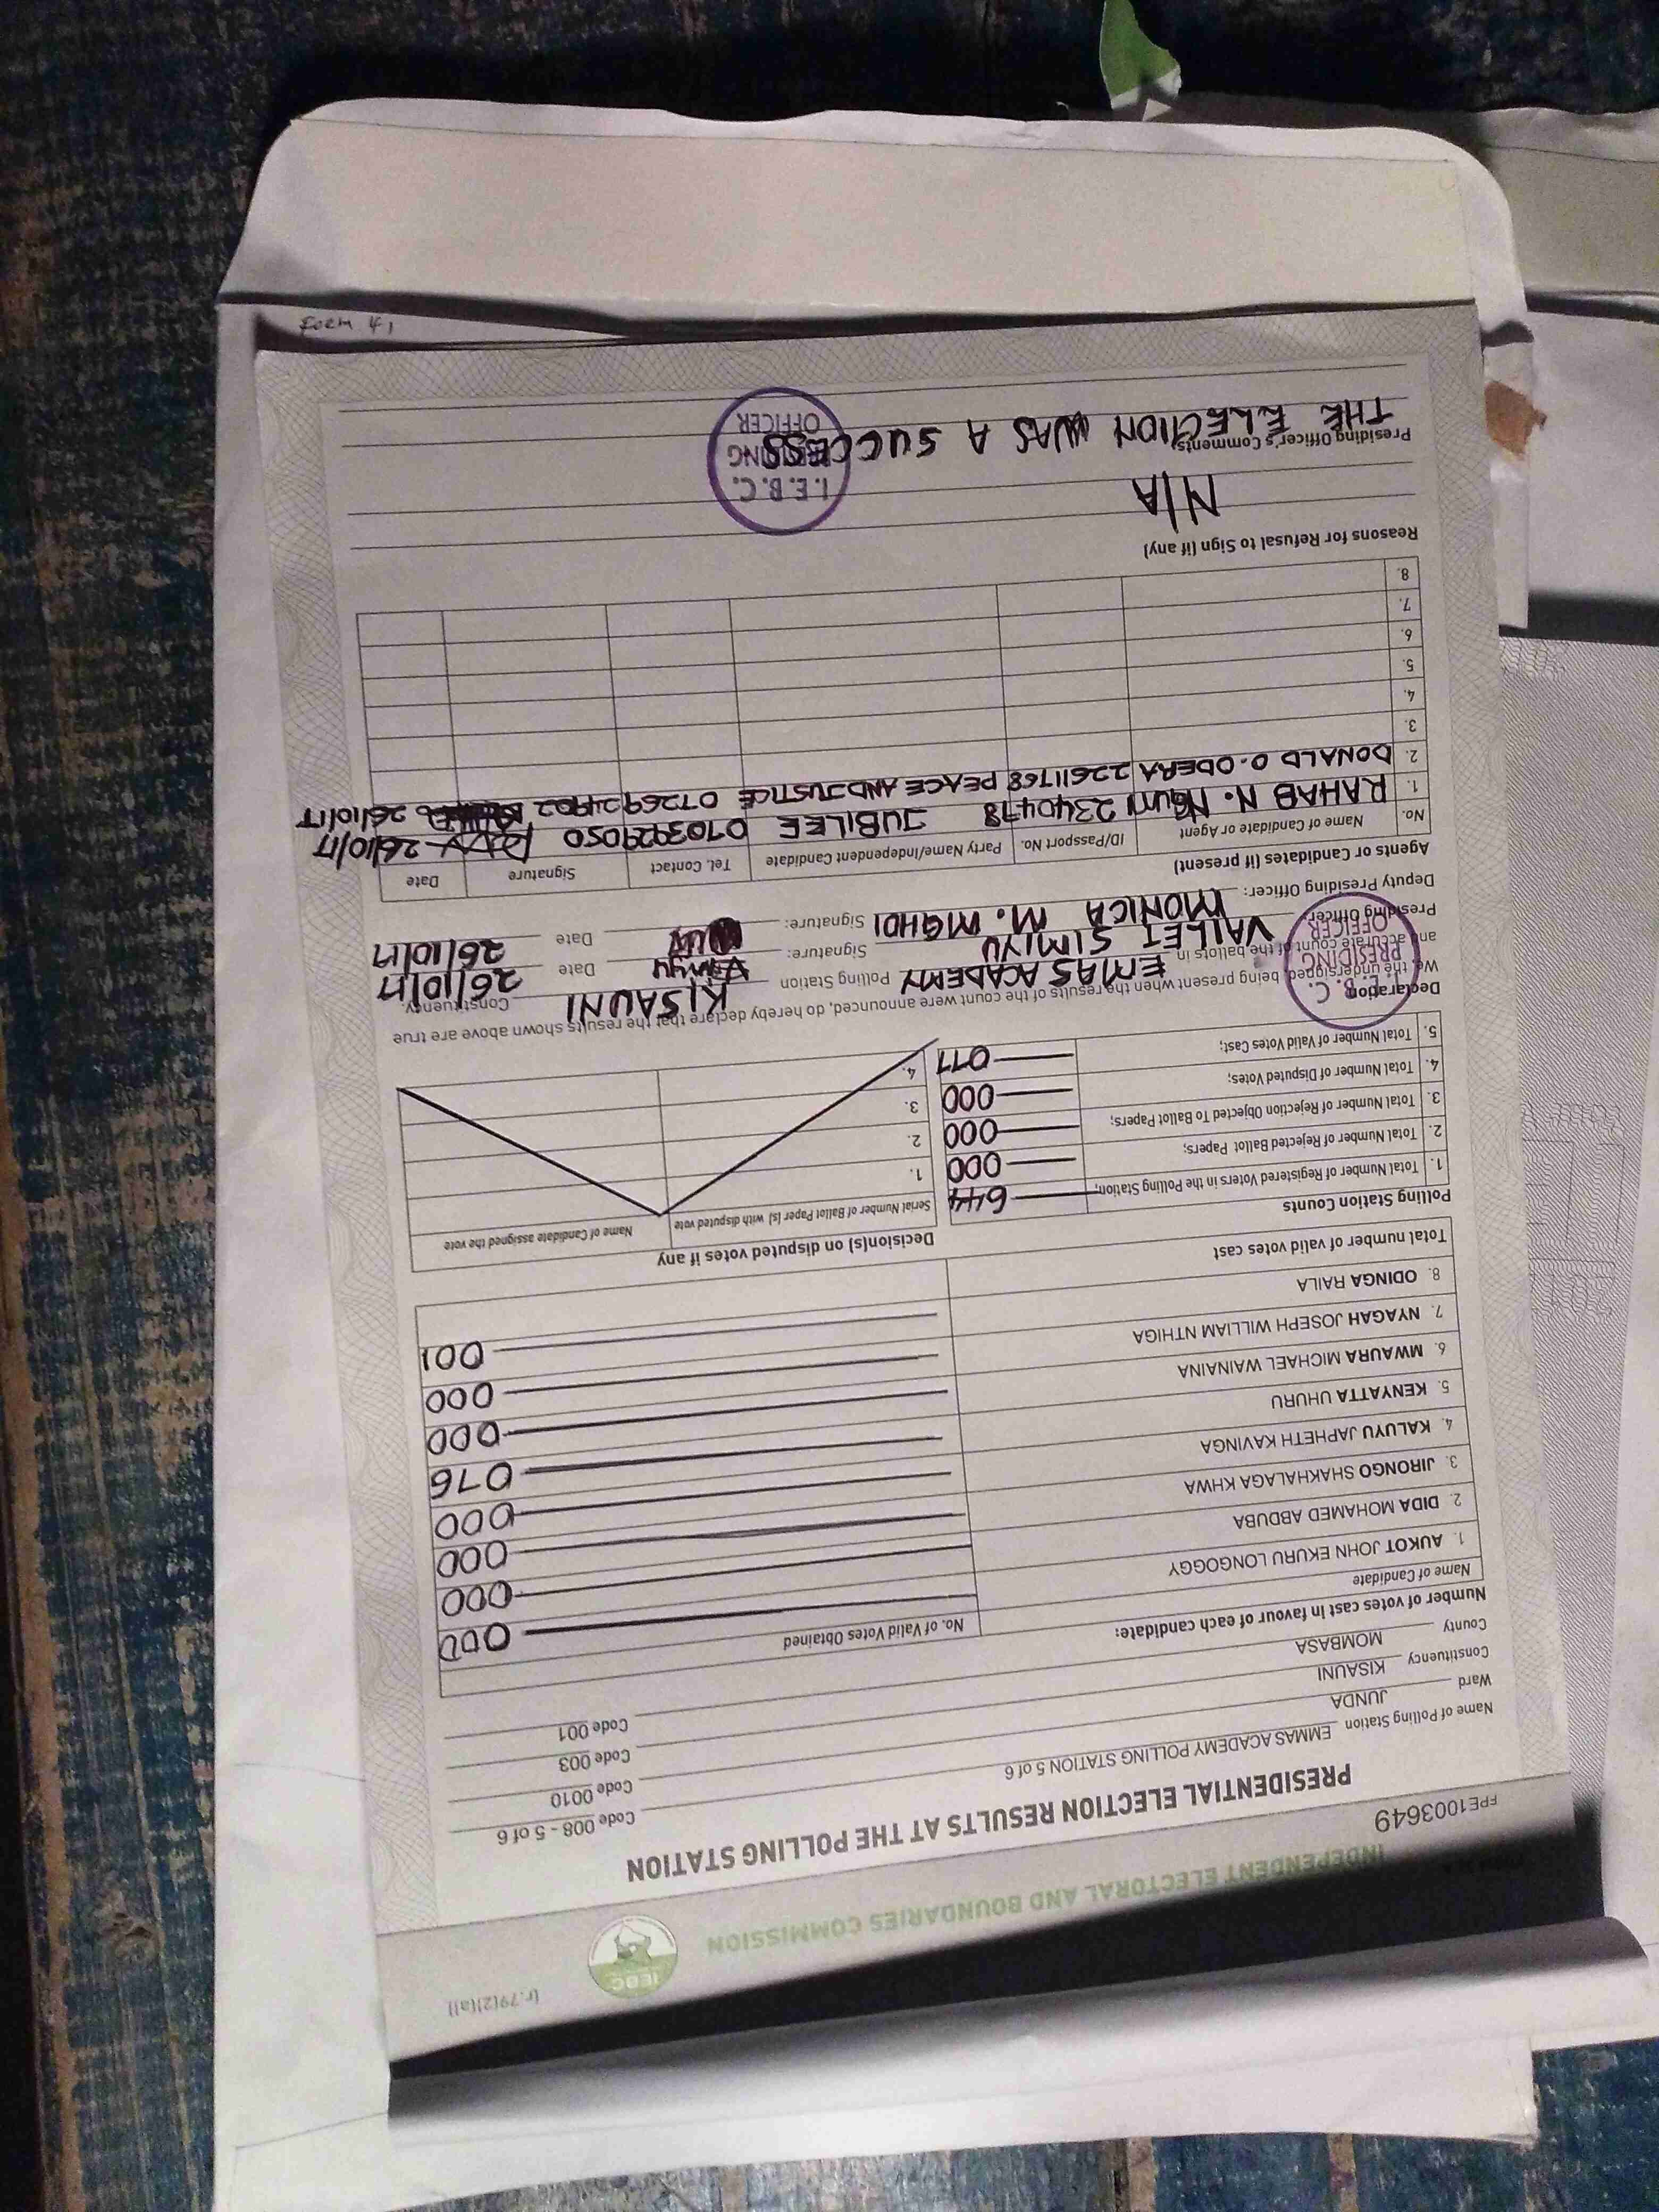 Form 41
(r.79(2)(a))
IEBC
INDEPENDENT ELECTORAL AND BOUNDARIES COMMISSION
FPE1003649
PRESIDENTIAL ELECTION RESULTS AT THE POLLING STATION
Name of Polling Station EMMAS ACADEMY POLLING STATION 5 of 6 Code 008 - 5 of 6
Ward JUNDA Code 0010
Constituency KISAUNI Code 003
County MOMBASA Code 001
Number of votes cast in favour of each candidate:
Name of Candidate No. of Valid Votes Obtained
1. AUKOT JOHN EKURU LONGOGGY 000
2. DIDA MOHAMED ABDUBA 000
3. JIRONGO SHAKHALAGA KHWA 000
4. KALUYU JAPHETH KAVINGA 000
5. KENYATTA UHURU 076
6. MWAURA MICHAEL WAINAINA 000
7. NYAGAH JOSEPH WILLIAM NTHIGA 000
8. ODINGA RAILA 001
Total number of valid votes cast
Polling Station Counts
1. Total Number of Registered Voters in the Polling Station; 644
2. Total Number of Rejected Ballot Papers; 000
3. Total Number of Rejection Objected To Ballot Papers; 000
4. Total Number of Disputed Votes; 000
5. Total Number of Valid Votes Cast; 077
Decision(s) on disputed votes if any
Serial Number of Ballot Paper (s) with disputed vote Name of Candidate assigned the vote
1.
2.
3.
4.
Declaration
We, the undersigned, being present when the results of the count were announced, do hereby declare that the results shown above are true
and accurate count of the ballots in EMAS ACADEMY Polling Station KISAUNI Constituency
Presiding Officer: VALLET SIMIYU Signature: Date 26/10/17
Deputy Presiding Officer: MONICA M. MGHOI Signature: Date 26/10/17
I.E.B.C.
PRESIDING
OFFICER
Agents or Candidates (if present)
No. Name of Candidate or Agent ID/Passport No. Party Name/Independent Candidate Tel. Contact Signature Date
1. RAHAB N. NGUNI 2340478 JUBILEE 0703929050 26/10/17
2. DONALD O. ODERA 22611768 PEACE AND JUSTICE 0726924902 26/10/17
3.
4.
5.
6.
7.
8.
Reasons for Refusal to Sign (if any)
N/A
Presiding Officer's Comments;
THE ELECTION WAS A SUCCESS
I.E.B.C.
PRESIDING
OFFICER